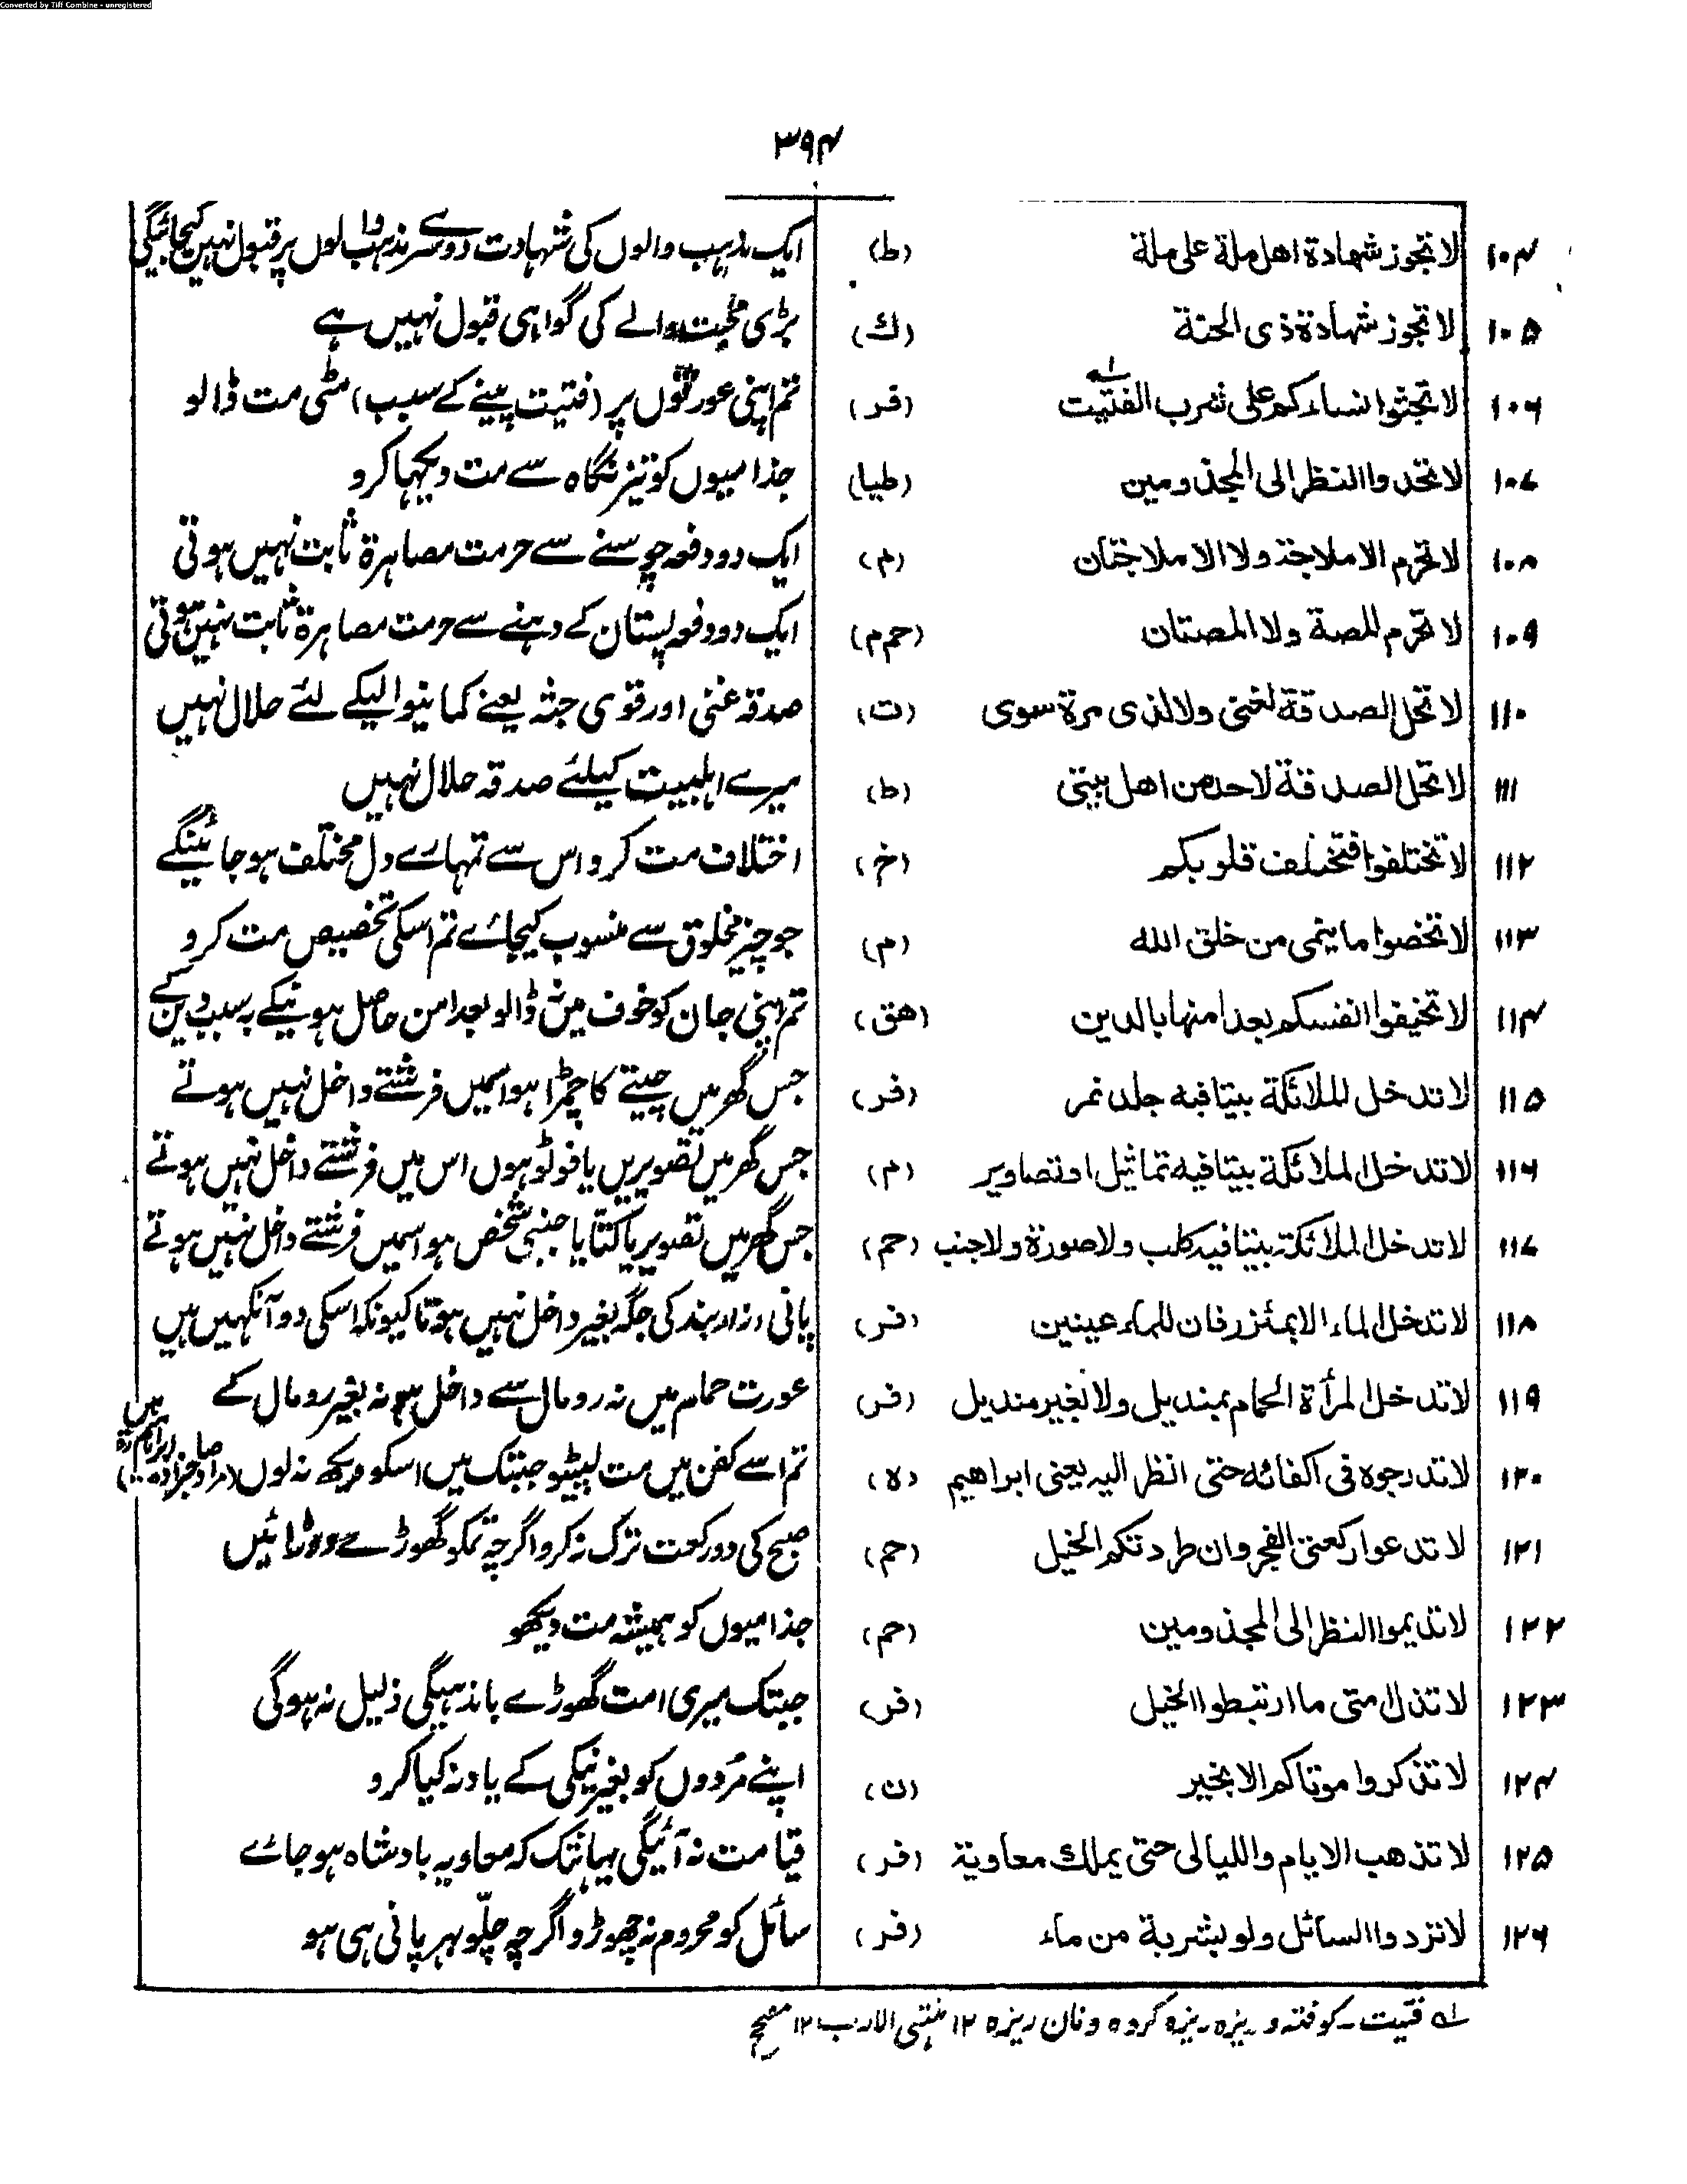 Converted by Tiff Combine - unregistered
۳۹۴
۱۰۴ لا تجوز شهادة اهل ملة على ملة (ط) ایک مذہب والوں کی شہادت دوسرے مذہب والوں پر قبول نہیں کیجائیگی
۱۰۵ لا تجوز شهادة ذى الحنة (ك) بڑی محبت والے کی گواہی قبول نہیں ہے
۱۰۶ لا تجثوا نساءكم على شرب الفتيت (فر) تم اپنی عورتوں پر (فتیت پینے کے سبب) مٹی مت ڈالو
۱۰۷ لا تحدوا النظر الى المجذومين (طيا) جذامیوں کو تیز نگاہ سے مت دیکھا کرو
۱۰۸ لا تحرم الاملاجة ولا الاملاجتان (م) ایک دو دفعہ چوسنے سے حرمت مصاہرۃ ثابت نہیں ہوتی
۱۰۹ لا تحرم المصة ولا المصتان (حم م) ایک دو دفعہ پستان کے دہنے سے حرمت مصاہرۃ ثابت نہیں ہوتی
۱۱۰ لا تحل الصدقة لغنى ولا لذى مرة سوى (ت) صدقہ غنی اور قوی جثہ یعنے کمانیوالیکے لئے حلال نہیں
۱۱۱ لا تحل الصدقة لاحد من اهل بيتى (ط) میرے اہلبیت کیلئے صدقہ حلال نہیں
۱۱۲ لا تختلفوا فتختلف قلوبكم (خ) اختلاف مت کرو اس سے تمہارے دل مختلف ہو جائینگے
۱۱۳ لا تخصوا ما ينمى من خلق الله (م) جو چیز مخلوق سے منسوب کیجائے تم اسکی تخصیص مت کرو
۱۱۴ لا تخيفوا انفسكم بعد امنها بالدين (هق) تم اپنی جان کو خوف میں نہ ڈالو بعد امن حاصل ہونیکے بہ سبب دین کے
۱۱۵ لا تدخل الملائكة بيتا فيه جلد نمر (فر) جس گھر میں چیتے کا چمڑا ہو اسمیں فرشتے داخل نہیں ہوتے
۱۱۶ لا تدخل الملائكة بيتا فيه تماثيل او تصاوير (م) جس گھر میں تصویریں یا فوٹو ہوں اس میں فرشتے داخل نہیں ہوتے
۱۱۷ لا تدخل الملائكة بيتا فيه كلب ولا صورة ولا جنب (حم) جس گھر میں تصویر یا کتا یا جنبی شخص ہو اسمیں فرشتے داخل نہیں ہوتے
۱۱۸ لا تدخل الماء الا بمئزر فان للماء عينين (فر) پانی ازار بند کی جگہ بغیر داخل نہیں ہوتا کیونکہ اسکی دو آنکہیں ہیں
۱۱۹ لا تدخل المرأة الحمام بمنديل ولا بغير منديل (فر) عورت حمام میں نہ رومال سے داخل ہو نہ بغیر رومال کے
۱۲۰ لا تدرجوه فى اكفائه حتى انظر اليه يعنى ابراهيم (ه) تم اسے کفن میں مت لپیٹو جبتک میں اسکو دیکھ نہ لوں (مراد صاحبزادہ ابراہیم ہیں)
۱۲۱ لا تدعوا ركعتى الفجر وان طردتكم الخيل (حم) صبح کی دو رکعت ترک نہ کرو اگرچہ تمکو گھوڑے دوڑائیں
۱۲۲ لا تديموا النظر الى المجذومين (حم) جذامیوں کو ہمیشہ مت دیکھو
۱۲۳ لا تذل امتى ما ارتبطوا الخيل (فر) جبتک میری امت گھوڑے باندہیگی ذلیل نہ ہوگی
۱۲۴ لا تذكروا موتاكم الا بخير (ن) اپنے مُردوں کو بغیر نیکی کے یاد نہ کیا کرو
۱۲۵ لا تذهب الايام والليالى حتى يملك معاوية (فر) قیامت نہ آئیگی یہانتک کہ معاویہ بادشاہ ہو جائے
۱۲۶ لا تردوا السائل ولو بشربة من ماء (فر) سائل کو محروم نہ چھوڑو اگرچہ چلّو بہر پانی ہی ہو
لہ فتیت - کوفتہ و ریزہ ریزہ کردہ و نان ریزہ ۱۲ منتہی الارب ۱۲ مصحح